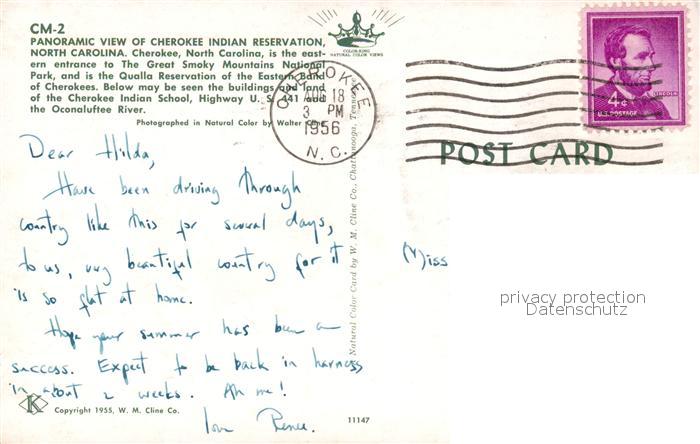 CM-2
PANORAMIC VIEW OF CHEROKEE INDIAN RESERVATION,
NORTH CAROLINA. Cherokee, North Carolina, is the east-
ern entrance to The Great Smoky Mountains National
Park, and is the Qualla Reservation of the Eastern Band
of Cherokees. Below may be seen the buildings and land
of the Cherokee Indian School, Highway U. S. 441 and
the Oconaluftee River.
Photographed in Natural Color by Walter Cline
COLOR-KING
NATURAL COLOR VIEWS
CHEROKEE
18
3 PM
1956
N. C.
LINCOLN
4¢
U.S. POSTAGE
POST CARD
Dear Hilda,
Have been driving through
country like this for several days,
to us, very beautiful country for it
is so flat at home.
Hope your summer has been a
success. Expect to be back in harness
in about 2 weeks. Ah me!
love Renee.
Miss
Natural Color Card by W. M. Cline Co., Chattanooga, Tennessee
privacy protection
Datenschutz
K
Copyright 1955, W. M. Cline Co.
11147